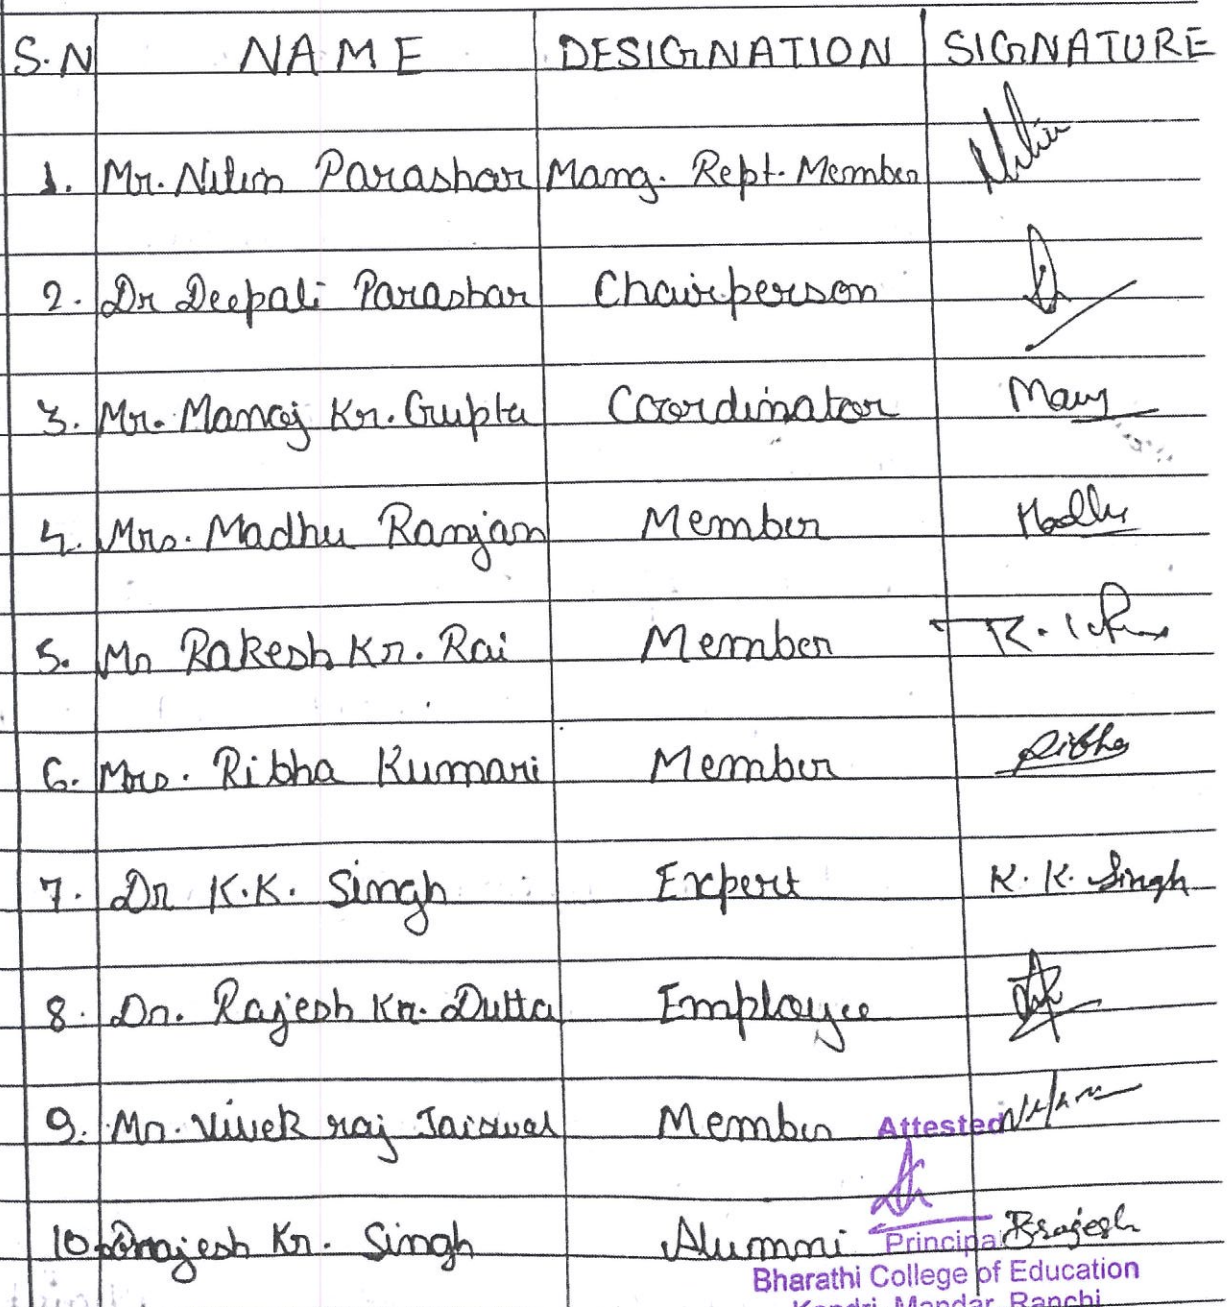 S.N NAME DESIGNATION SIGNATURE
1. Mr. Nitin Parashar Mang. Rept. Member Nitin
2. Dr Deepali Parashar Chairperson
3. Mr. Manoj Kr. Gupta Coordinator
4. Mrs. Madhu Ranjan Member Madhu
5. Mr Rakesh Kr. Rai Member
6. Mrs. Ribha Kumari Member Ribha
7. Dr K.K. Singh Expert K. K. Singh
8. Dr. Rajesh Kr. Dutta Employee
9. Mr. Vivek raj Jaiswal Member
Attested
10. Brajesh Kr. Singh Alumni Brajesh
Principal
Bharathi College of Education
Kandri, Mandar, Ranchi